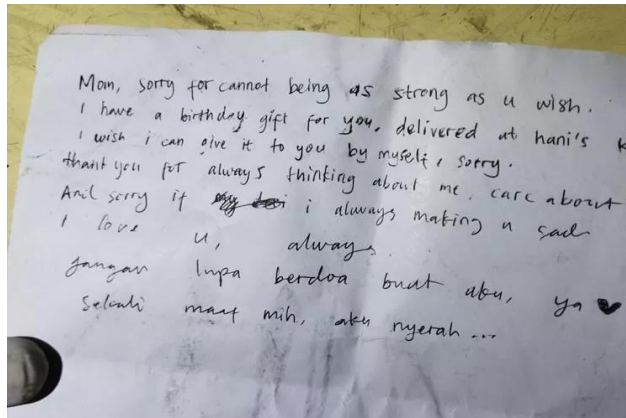 Mom, sorry for cannot being as strong as u wish.
I have a birthday gift for you, delivered at hani's k
I wish i can give it to you by myself, sorry.
thank you for always thinking about me. care about
And sorry if i always making u sad
I love u, always.
Jangan lupa berdoa buat aku, ya ♥
Sekali maaf mih, aku nyerah ...